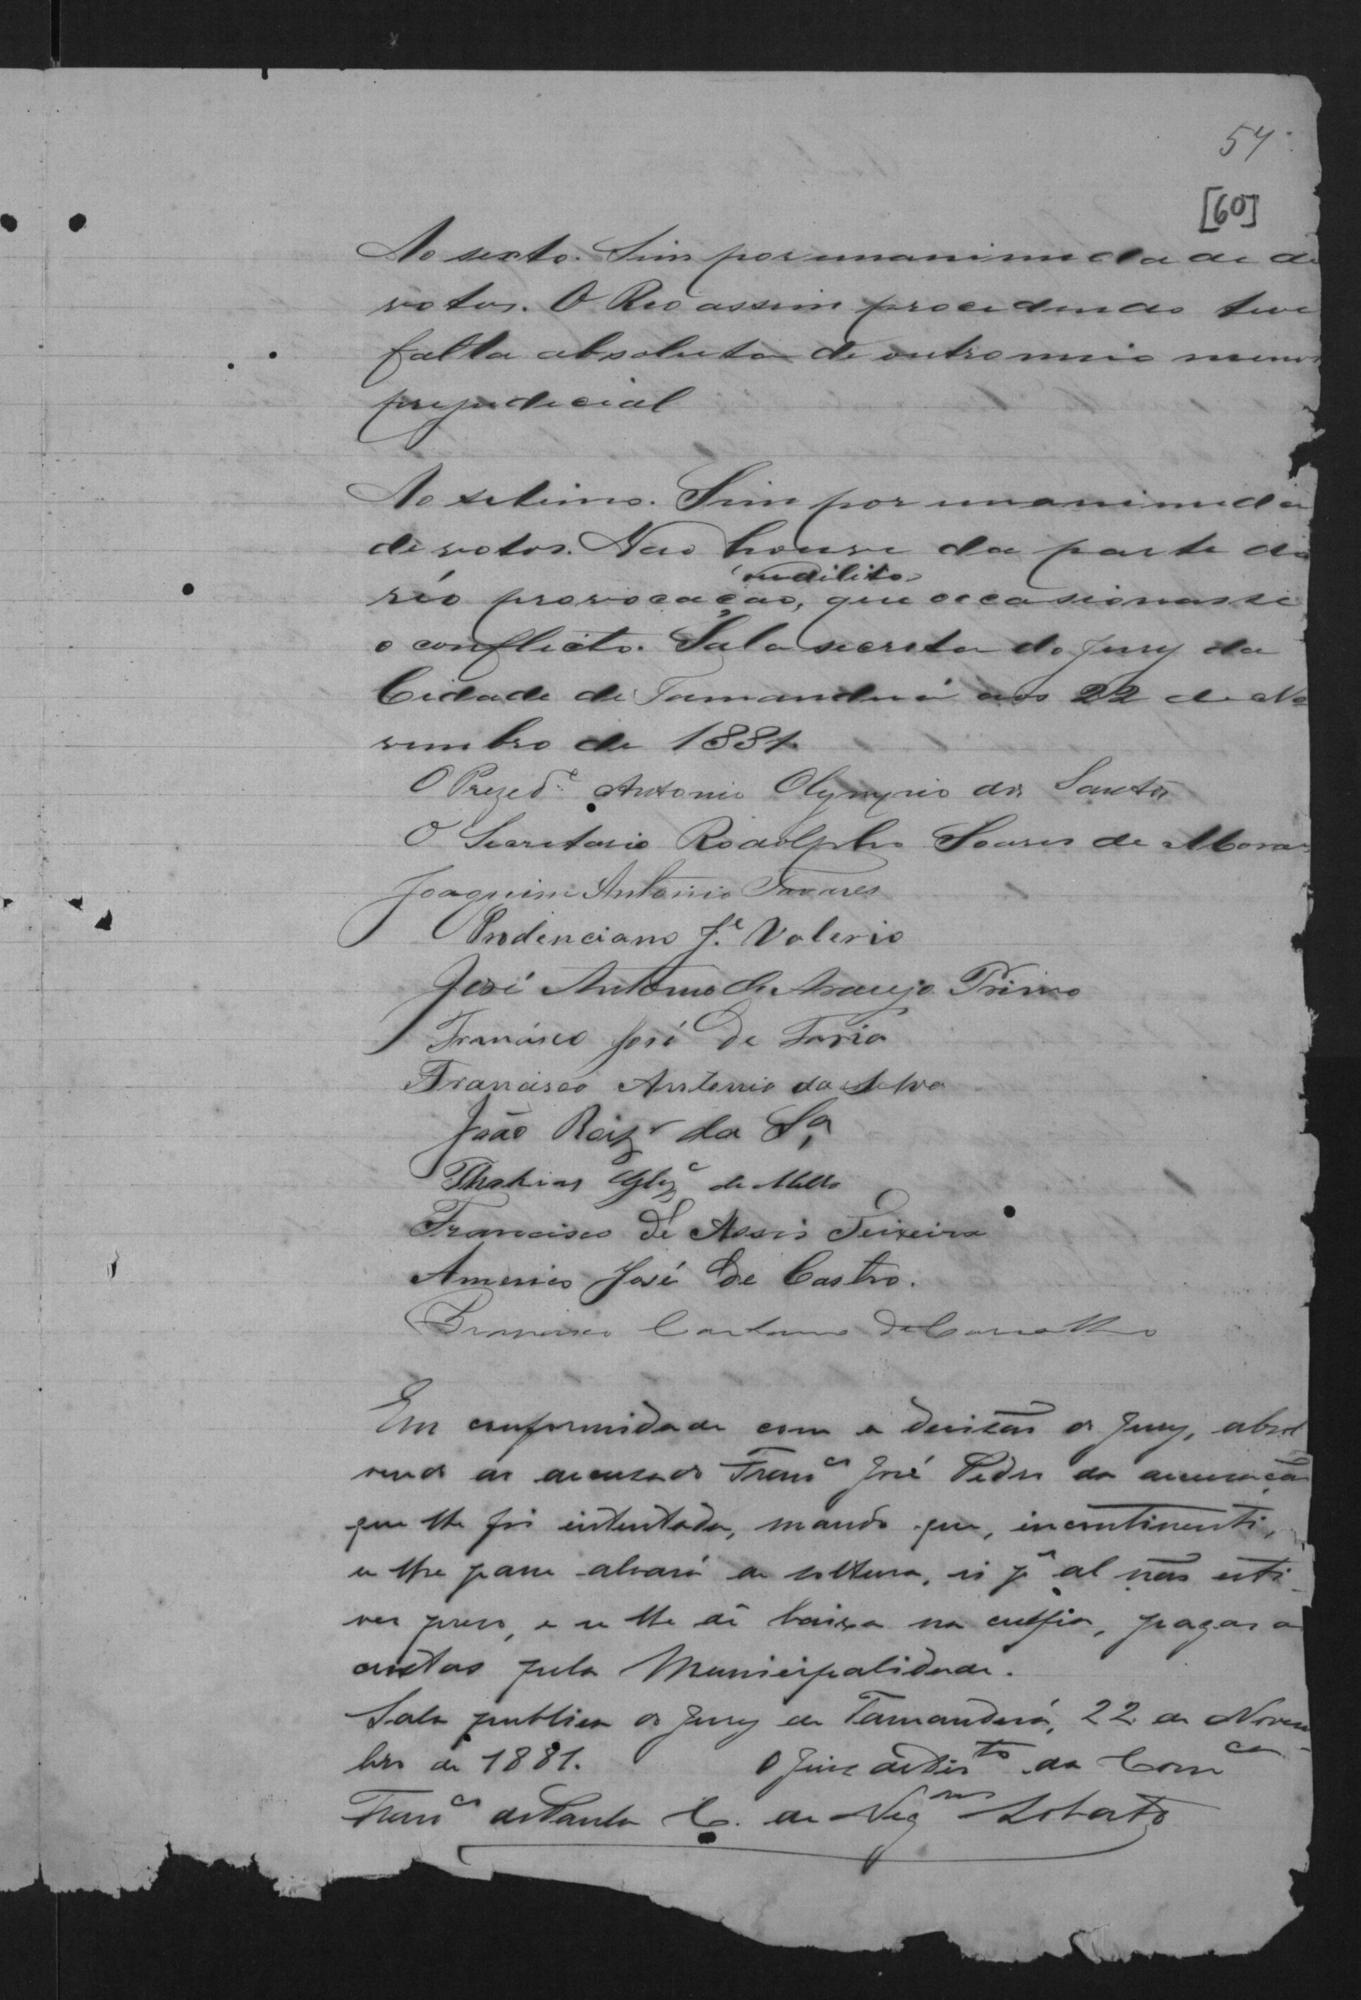 57
[60]
Ao sexto. Sim por unanimidade de
votos. O Reo assim procedendo teve
falta absoluta de outro meio menos
prejudicial
Ao setimo. Sim por unanimida
de votos. Nao houve da parte do
ou dilito
réo provocação, que occasionasse
o conflicto. Sala secreta do Jury da
Cidade de Tamanduá aos 22 de No
vembro de 1881.
O Prezed.e Antonio Olympio dos Santos
O Secretario Rodolpho Soares de Moraes
Joaquim Antonio Tavares
Prudenciano J.e Valerio
José Antonio de Araujo Primo
Francisco José de Faria
Francisco Antonio da Silva
João Roiz da S.a
Glz de Mello
Francisco de Assis Teixeira
Americo José de Castro.
Francisco Caetano de Carvalho
Em conformidade com a decisão do Jury, absol
vendo ao accusado Franco José Pedro da accusação
que lhe foi intentada, mando que, incontinenti,
se lhe passe alvará de soltura, si por al não esti-
ver preso, e se lhe dê baixa na culpa, pagas as
custas pela Municipalidade.
Sala publica do Jury de Tamanduá, 22 de Novem-
bro de 1881. O Juiz de Dirto da Comca
Franco de Paula C. de Negros Lobato